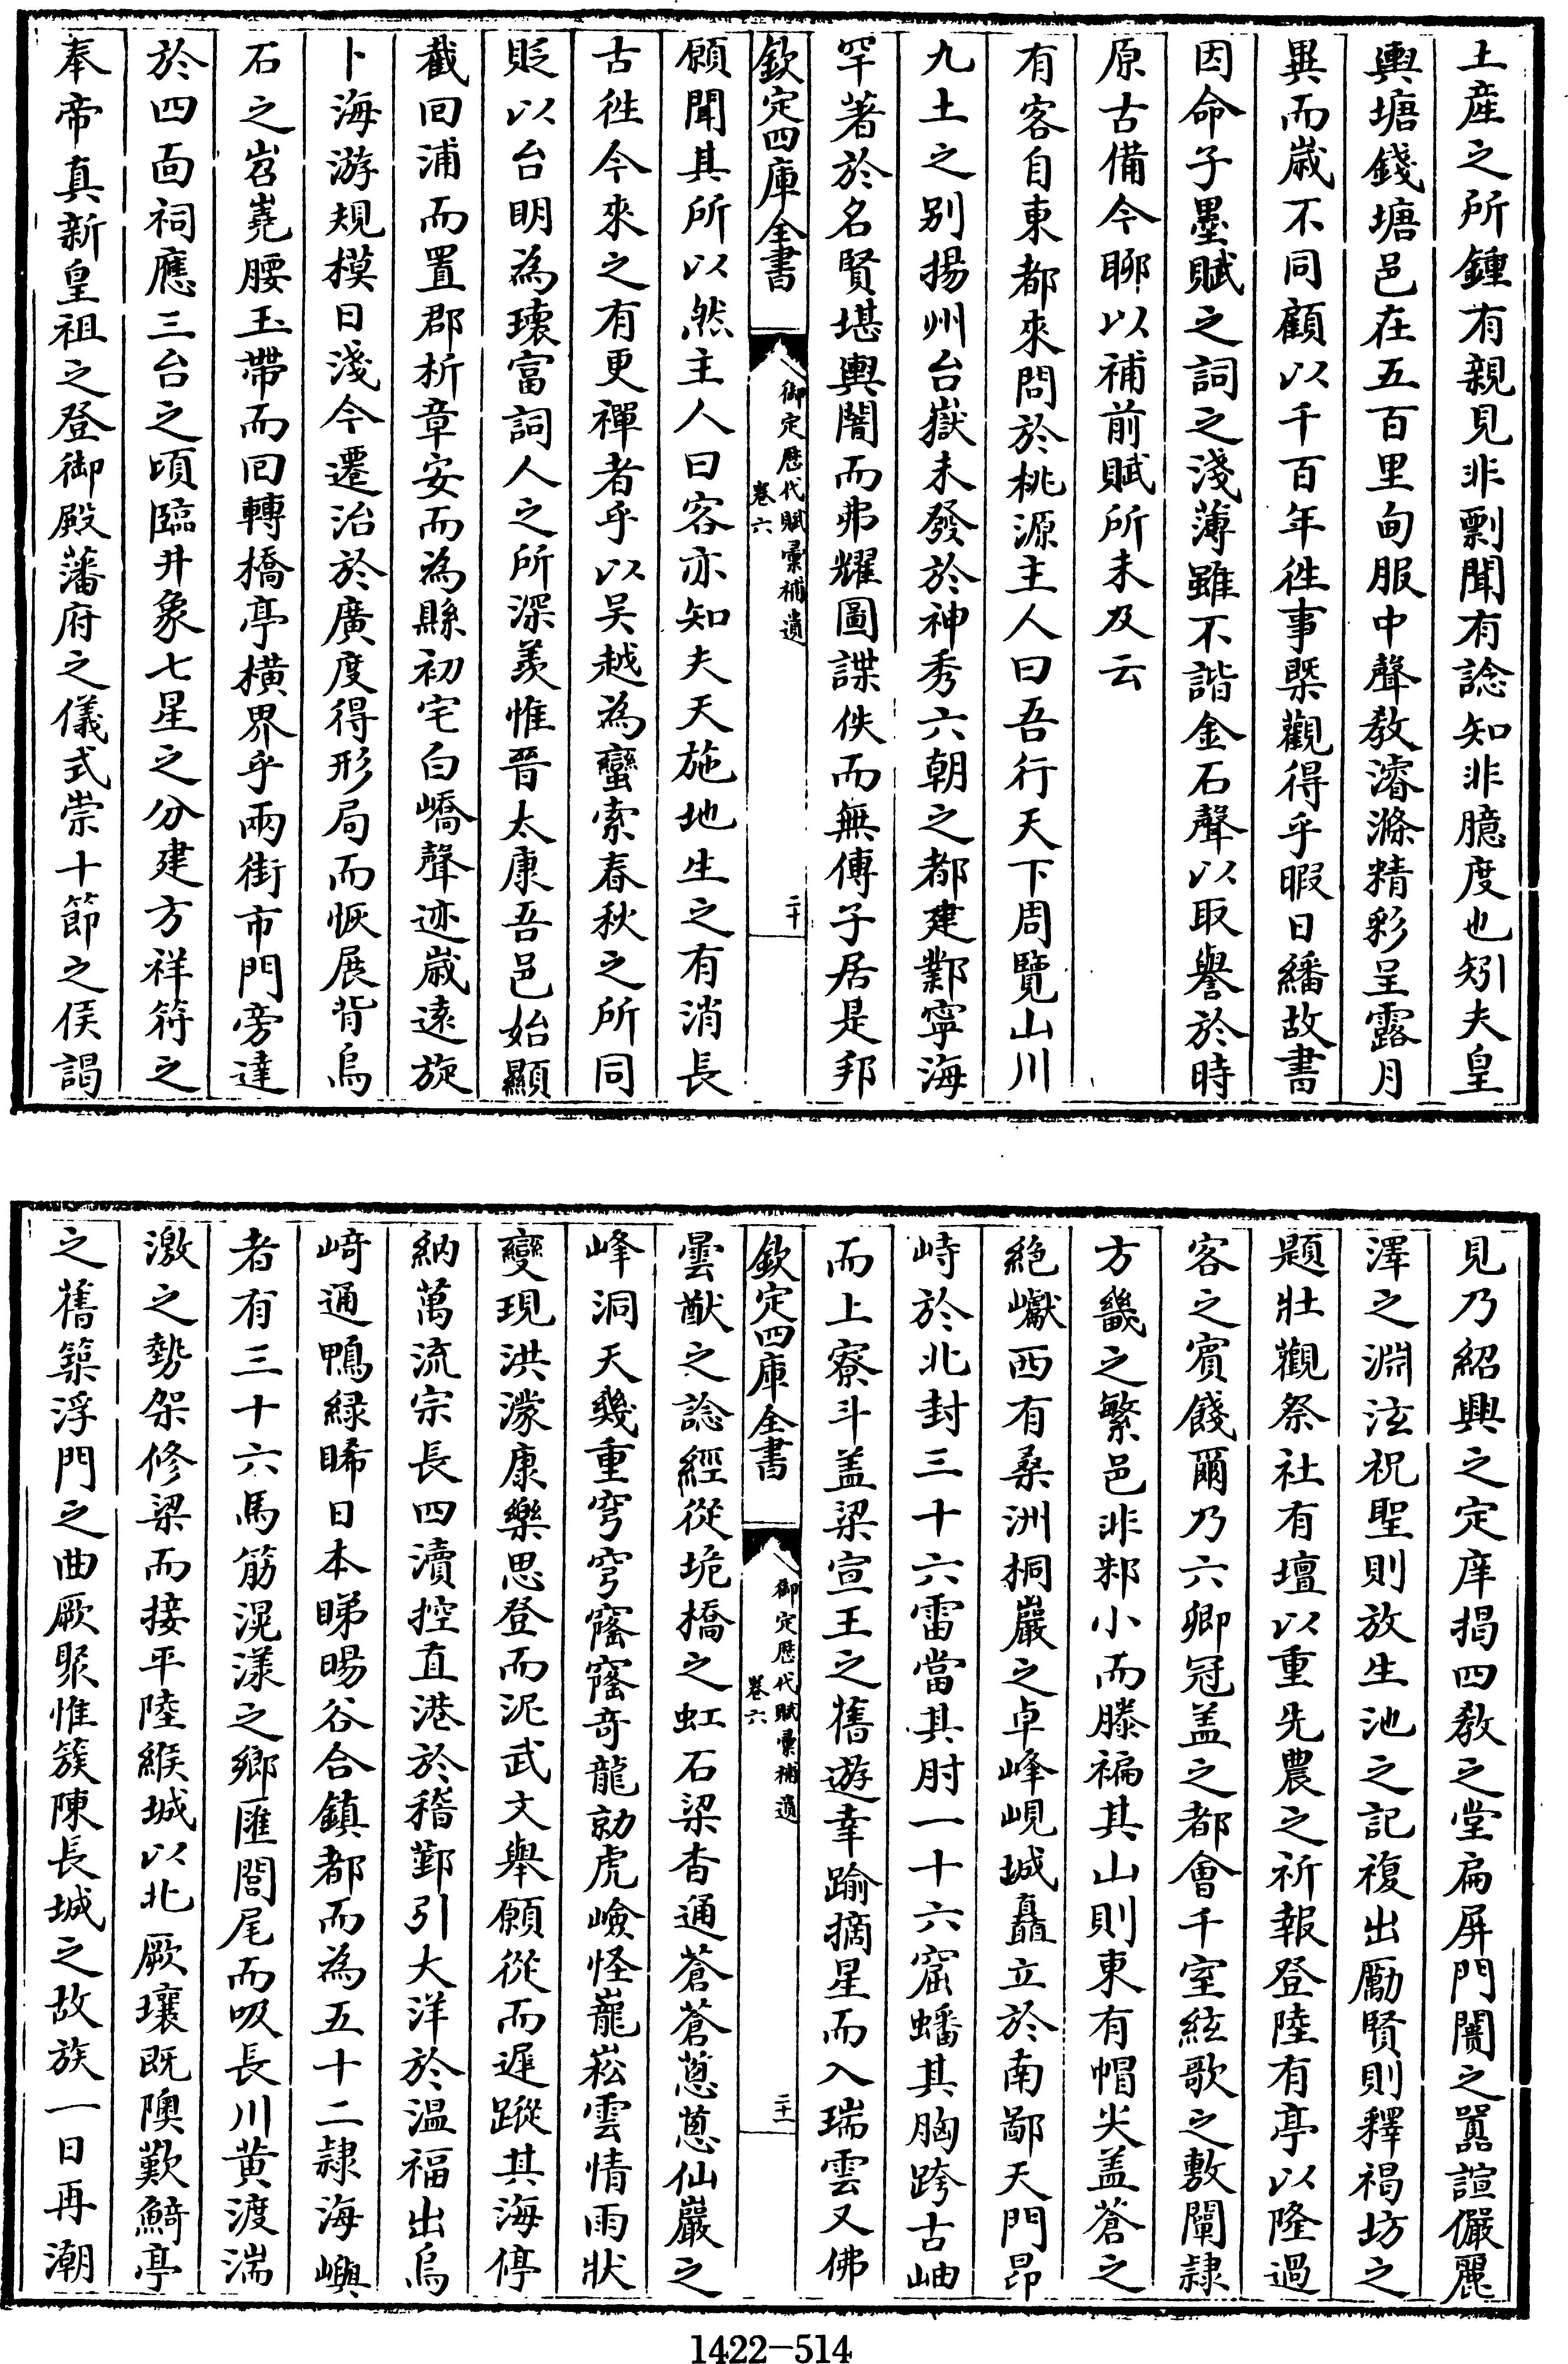 土産之所鍾有親見非剽聞有諗知非臆度也矧夫皇
輿塘錢塘邑在五百里甸服中聲教濬滌精彩呈露月
異而嵗不同顧以千百年徃事槩觀得乎暇日繙故書
因命子墨賦之詞之淺薄雖不諧金石聲以取譽於時
原古備今聊以補前賦所未及云
有客自東都來問於桃源主人曰吾行天下周覽山川
九土之别揚州台嶽未發於神秀六朝之都建鄴寧海
罕著於名賢堪輿闇而弗耀圖諜佚而無傳子居是邦
欽定四庫全書
御定歴代賦彚補遺
卷六
二十
願聞其所以然主人曰客亦知夫天施地生之有消長
古徃今來之有更禪者乎以吴越為蠻索春秋之所同
貶以台明為瓌富詞人之所深羨惟晉太康吾邑始顯
截回浦而置郡析章安而為縣初宅白嶠聲迹嵗逺旋
卜海游規模日淺今遷治於廣度得形局而恢展背烏
石之岧嶤腰玉帶而回轉橋亭横界乎兩街市門旁達
於四面祠應三台之頃臨井象七星之分建方祥符之
奉帝真新皇祖之登御殿藩府之儀式崇十節之侯謁
見乃紹興之定庠揭四教之堂扁屏門闠之囂諠儼麗
澤之淵泫祝聖則放生池之記複出勵賢則釋褐坊之
題壯觀祭社有壇以重先農之祈報登陸有亭以隆過
客之賔餞爾乃六卿冠盖之都㑹千室絃歌之敷闡隸
方畿之繁邑非邾小而滕褊其山則東有帽尖盖蒼之
絶巘西有桑洲桐巖之卓峰峴城矗立於南鄙天門昂
峙於北封三十六雷當其肘一十六窟蟠其胸跨古岫
而上寮斗盖梁宣王之舊遊幸踰摘星而入瑞雲又佛
欽定四庫全書
御定歴代賦彚補遺
卷六
二十一
曇猷之諗經從垝橋之虹石梁杳通蒼蒼蔥蔥仙巖之
峰洞天幾重穹穹窿窿竒龍勍虎嶮怪巃崧雲情雨狀
變現洪濛康樂思登而泥武文舉願從而遲蹤其海停
納萬流宗長四瀆控直港於稽鄞引大洋於温福出烏
﨑通鴨緑睎日本睇暘谷合鎮都而為五十二隷海嶼
者有三十六馬筋滉漾之鄉匯閭尾而吸長川黄渡湍
激之勢架修梁而接平陸緱城以北厥壤既隩歎鮚亭
之舊築浮門之曲厥聚惟簇陳長城之故族一日再潮
1422-514